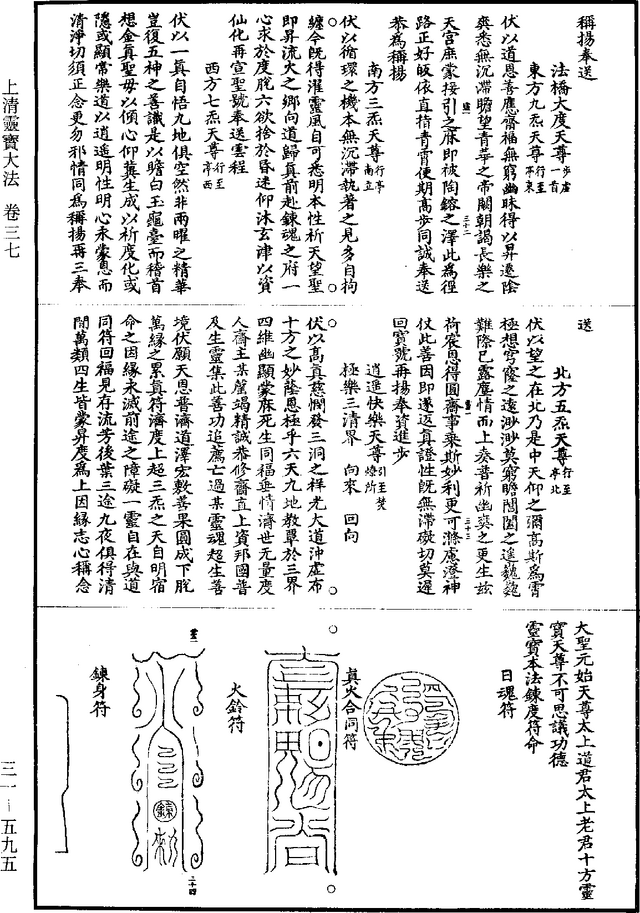 稱揚奉送
法橋大度天尊步虛一首
東方九炁天尊行至亭東
伏以道恩善應齋福無窮幽昧得以昇遷陰
爽悉無沉滯瞻望青華之帝闕朝謁長樂之
天宮庶蒙接引之庥即被陶鎔之澤此為徑
路正好皈依直指青霄便期高步同誠奉送
恭為稱揚
南方三炁天尊行亭南立
伏以循環之機本無沉滯執著之見多自拘
纏今既得濯靈風自可悉明本性祈天望聖
即昇流火之鄉向道歸真前赴鍊魂之府一
心求於度脫六欲捨於昏迷仰沐玄津以資
仙化再宣聖號奉送雲程
西方七炁天尊行至亭西
伏以一真自悟九地俱空然非兩曜之精華
豈復五神之善識是以瞻白玉龜臺而稽首
想金真聖母以傾心仰冀生成以祈度化或
隱或顯常樂道以逍遙明性明心永蒙恩而
清淨切須正念更勿邪情同為稱揚再三奉
送
北方五炁天尊行至亭北
伏以望之在北乃是中天仰之彌高斯為霄
極想穹窿之遠渺渺莫窮瞻閶闔之遙巍巍
難際已露塵情而上奏普祈幽爽之更生玆
荷宸恩得圓齋事乘斯妙利更可滌慮澄神
仗此善因即遂返真證性既無滯礙切莫遲
回寶號再揚奉資進步
逍遙快樂天尊引至焚燎所
極樂三清界 向來 回向
伏以高真慈憫發三洞之祥光大道沖虛布
十方之妙蔭恩極乎六天九地教覃於三界
四維幽顯蒙庥死生同福垂情濟世無量度
人齋主某罄竭精誠恭修齋直上資邦國普
及生靈集此善功追薦亡過某靈魂超生善
境伏願天恩普濟道澤宏敷善果圓成下脫
萬緣之累真符濟度上超三炁之天自明宿
命之因緣永滅前途之障礙一靈自在與道
同符回福見存流芳後葉三途九夜俱得清
閒萬類四生皆蒙昇度為上因緣志心稱念
大聖元始天尊太上道君太上老君十方靈
寶天尊不可思議功德
靈寶本法鍊度符命
日魂符
真火合同符
火鈴符
鍊身符
上清靈寶大法 卷三七
三一－五九五